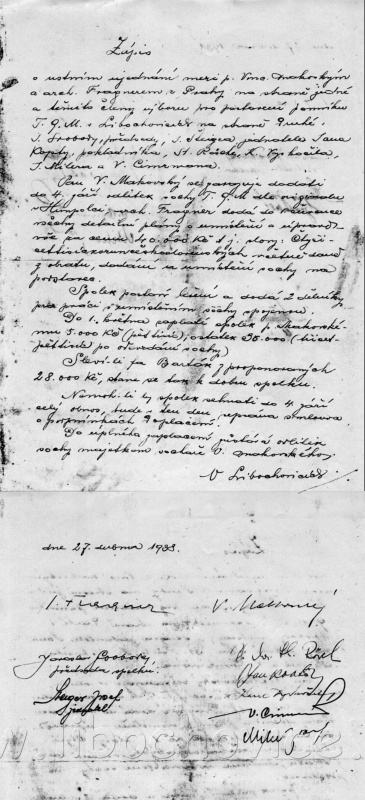 Zápis
o ústním ujednání mezi p. Vinc. Makovským
a arch. Fragnerem z Prahy na straně jedné
a těmito členy výboru pro postavení pomníku
T. G. M. v Libochovicích na straně druhé:
J. Svobody, předsedy, J. Šteigra jednatele, Jana
pokladníka, St. K. Vychočila,
J. a V. Cimrmana.
Pan V. Makovský se zavazuje dodati
do 4. září odlitek sochy T. G. M. dle originálu
arch. Fragner dodá do
všechny detailní plány o umístění a
za cenu 40.000 Kč t. j. slovy: Čtyři-
cettisíckorunčeskoslovenských včetně daně
z obratu, dodání a umístění sochy na
podstavec.
Spolek postaví lešení a dodá 2 dělníky
pro práci s umístěním sochy spojenou.
Do 1. května zaplatí spolek p. Makovské-
mu 5.000 Kč (pět tisíc), ostatek 35.000 (třicet-
pět tisíc) po odevzdání sochy.
Sleví-li fa Barták z proponovaných
28.000 Kč, stane se tak k dobru spolku.
Nemohl-li by spolek sehnati do 4. září
celý obnos, bude v ten den upravena smlouva
o podmínkách zaplacení.
Do úplného zaplacení zůstává odlitek
sochy majetkem sochaře V. Makovského.
V Libochovicích
dne 27. dubna 1933.
J. Fragner V. Makovský
Jaroslav Svoboda
předseda spolku.
Šteigr Josef
jednatel
V. Cimrman
www.libochovice.cz